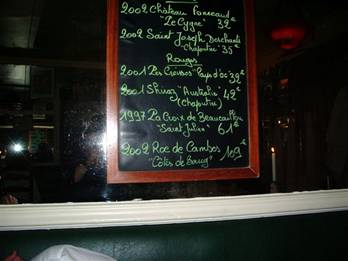 2002 Château Fonreaud
"Le Cygne" 32€
2002 Saint Joseph Deschants
"Chapoutier" 35€
Rouges
2001 Les Creisses Pays d'oc 39€
2001 Shiraz "Australie" 42€
(Chapoutier)
1997 La Croix de Beaucaillou
"Saint Julien" 61€
2002 Roc de Cambes 109€
"Côtes de Bourg"